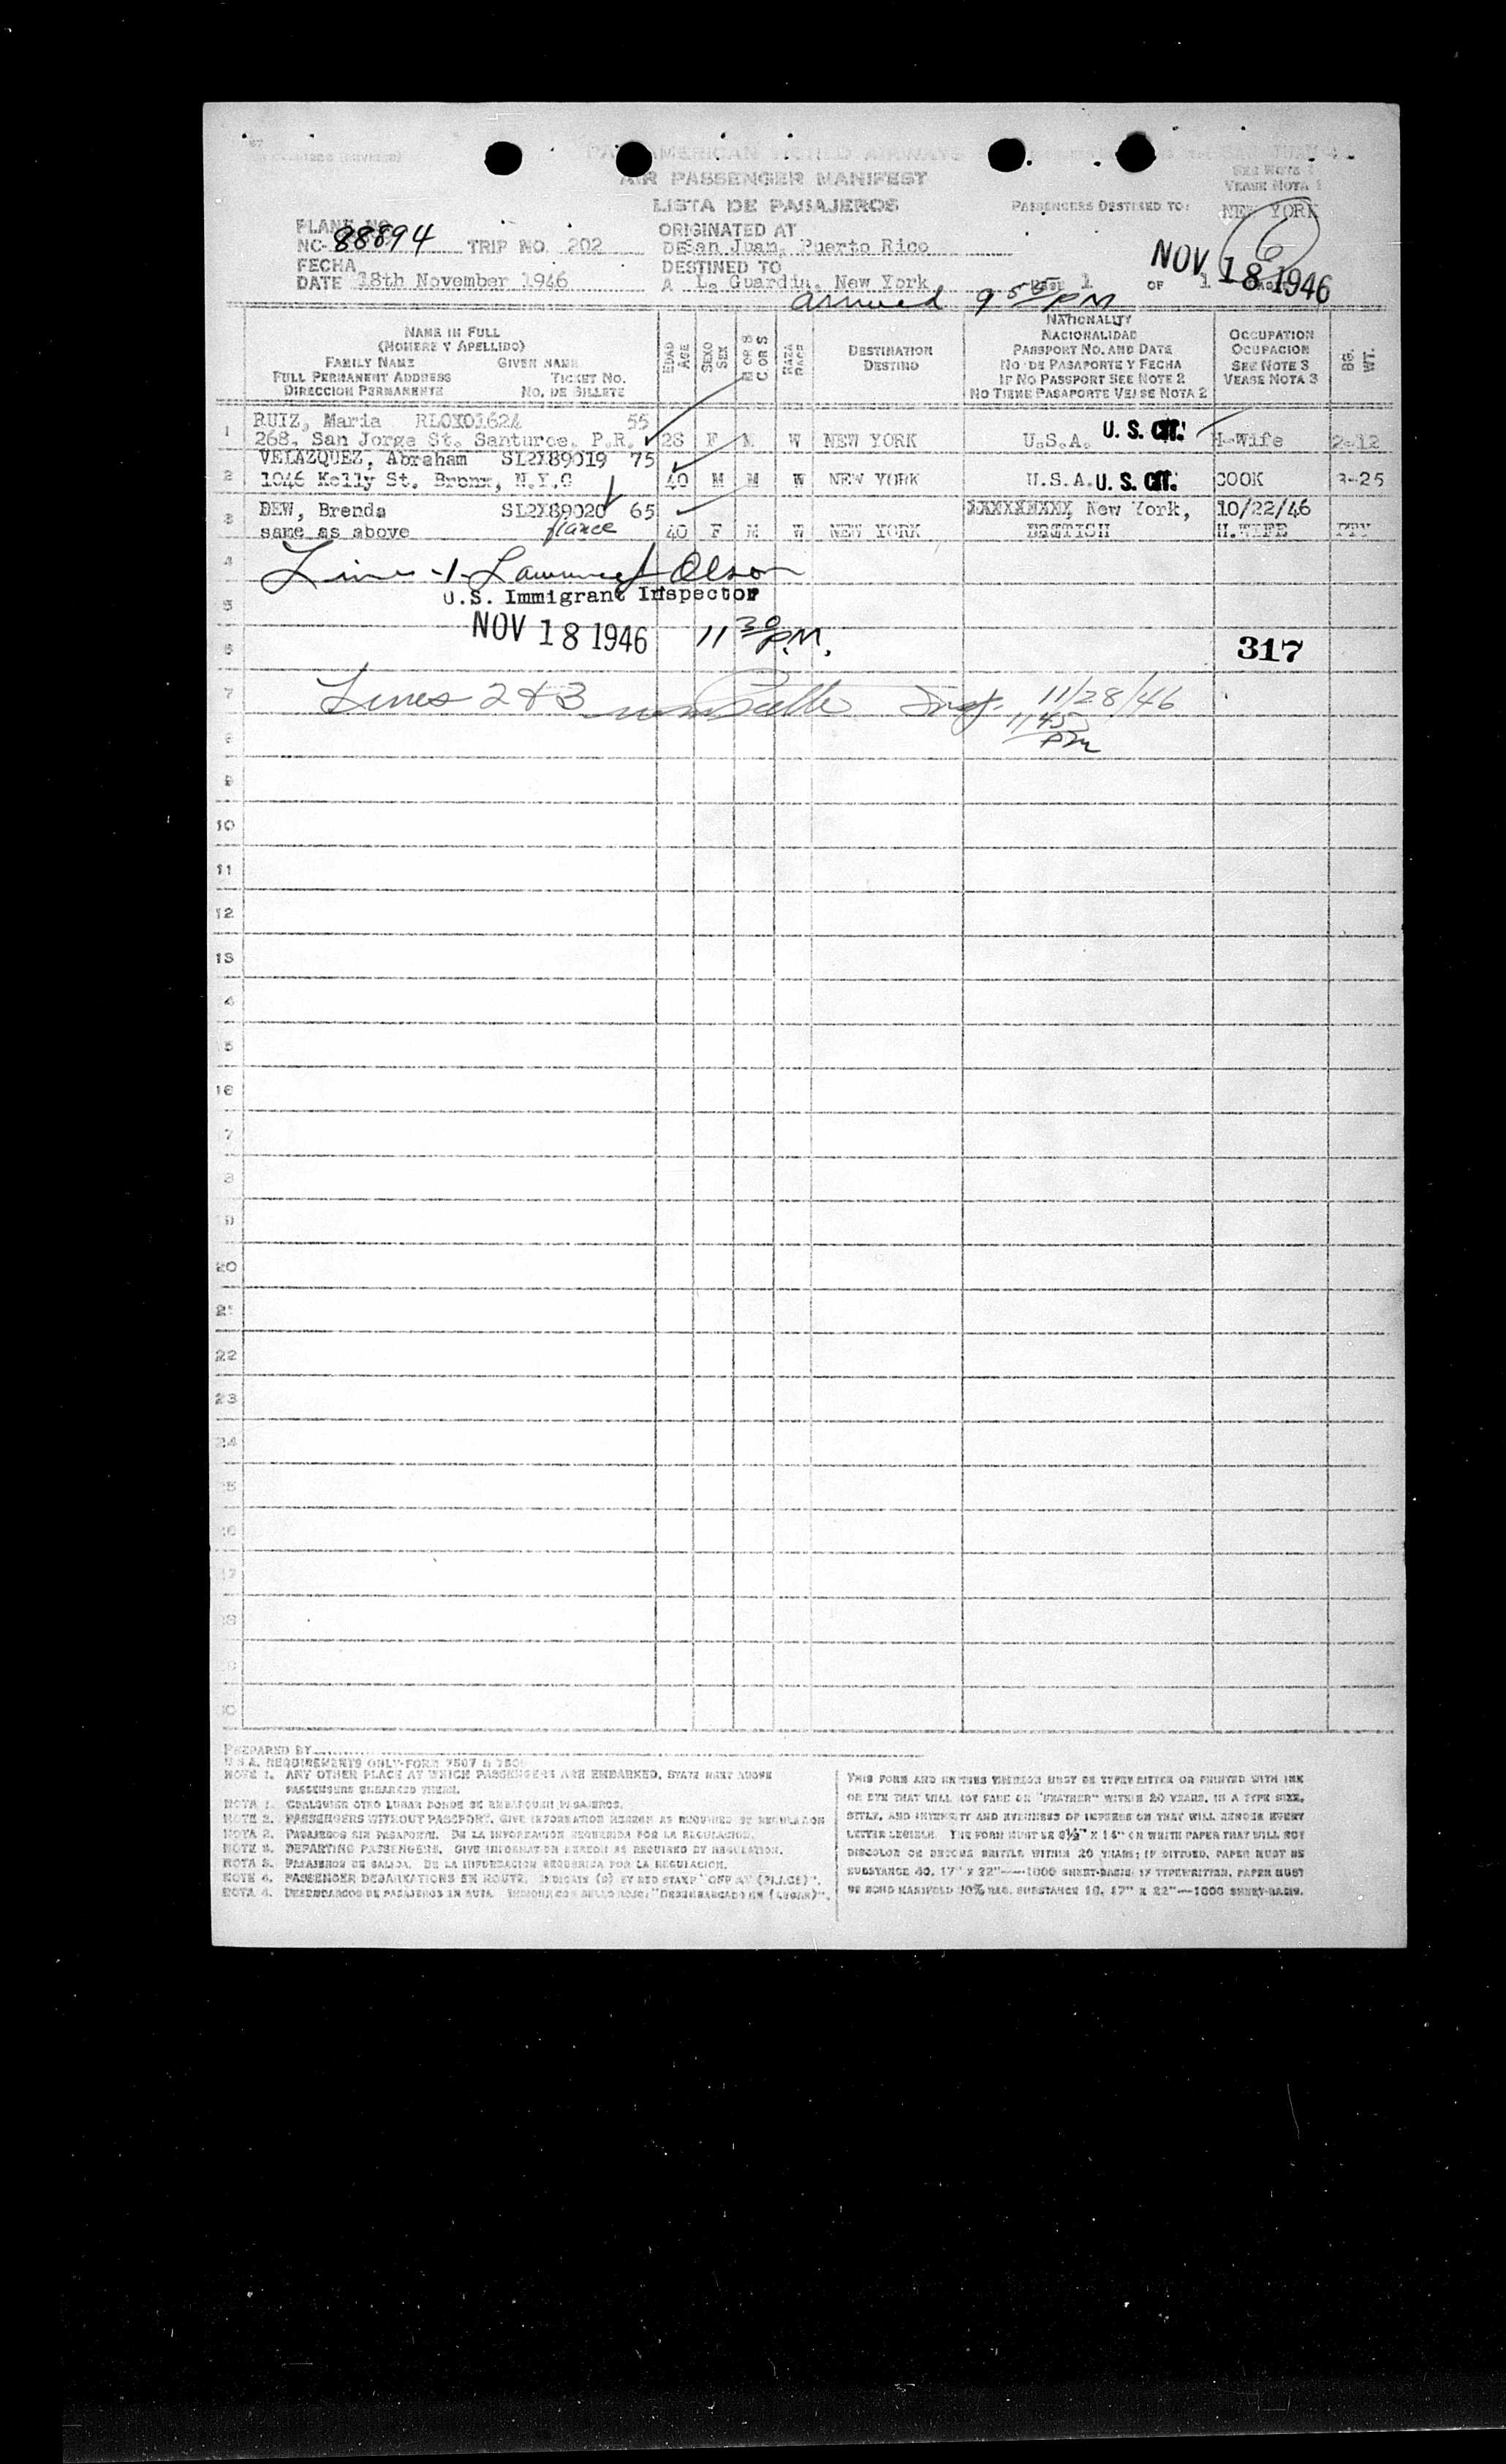 PAN AMERICAN WORLD AIRWAYS
AIR PASSENGER MANIFEST
LISTA DE PASAJEROS
SEE NOTE 1
VEASE NOTA 1
PASSENGERS DESTINED TO:
NEW YORK
6
PLANE NO.
NC- 88894 TRIP NO. 202
ORIGINATED AT
DE San Juan, Puerto Rico
FECHA
DATE 18th November 1946
DESTINED TO
A La Guardia, New York
NOV 18 1946
PAGE 1 OF 1
arrived 9 55 PM
NAME IN FULL
(NOMBRE Y APELLIDO)
FAMILY NAME GIVEN NAME
FULL PERMANENT ADDRESS TICKET NO.
DIRECCION PERMANENTE NO. DE BILLETE
EDAD AGE
SEXO SEX
M OR S C OR S
RAZA RACE
DESTINATION
DESTINO
NATIONALITY
NACIONALIDAD
PASSPORT NO. AND DATE
NO. DE PASAPORTE Y FECHA
IF NO PASSPORT SEE NOTE 2
NO TIENE PASAPORTE VEASE NOTA 2
OCCUPATION
OCUPACION
SEE NOTE 3
VEASE NOTA 3
BG. WT.
1 RUIZ, Maria RLOX01624 55
268, San Jorge St. Santurce. P.R. 28 F M W NEW YORK U.S.A. U. S. CIT. H-Wife 2-12
2 VELAZQUEZ, Abraham SL2X89019 75
1046 Kelly St. Bronx, N.Y.C 40 M M W NEW YORK U.S.A. U. S. CIT. COOK 3-25
3 DEW, Brenda SL2X89020 65 XXXXXXXXX, New York, 10/22/46
same as above fiance 40 F M W NEW YORK BRITISH H.WIFE
4 Line -1- Lawrence J Olson
5 U.S. Immigrant Inspector
NOV 18 1946 11 30 P.M.
6 317
7 Lines 2 & 3 Insp. 11/28/46
11 45 PM
8
9
10
11
12
13
4
5
16
7
8
9
20
21
22
23
24
PREPARED BY
U.S.A. REQUIREMENTS ONLY-FORM 7507 & 7509
NOTE 1. ANY OTHER PLACE AT WHICH PASSENGERS ARE EMBARKED, STATE NEXT ABOVE
PASSENGERS EMBARKED THERE.
NOTA 1. CUALQUIER OTRO LUGAR DONDE SE EMBARQUEN PASAJEROS.
NOTE 2. PASSENGERS WITHOUT PASSPORT, GIVE INFORMATION HEREON AS REQUIRED BY REGULATION
NOTA 2. PASAJEROS SIN PASAPORTE. DE LA INFORMACION REQUERIDA POR LA REGULACION.
NOTE 3. DEPARTING PASSENGERS, GIVE INFORMATION HEREON AS REQUIRED BY REGULATION.
NOTA 3. PASAJEROS DE SALIDA. DE LA INFORMACION REQUERIDA POR LA REGULACION.
NOTE 4. PASSENGER DEBARKATIONS EN ROUTE, INDICATE (S) BY RED STAMP "OFF AT (PLACE)".
NOTA 4. DESEMBARCOS DE PASAJEROS EN RUTA. INDIQUE CON SELLO ROJO: "DESEMBARCADO EN (LUGAR)".
THIS FORM AND ENTRIES THEREON MUST BE TYPEWRITTEN OR PRINTED WITH INK
OR DYE THAT WILL NOT FADE OR "FEATHER" WITHIN 20 YEARS, IN A TYPE SIZE,
STYLE, AND INTENSITY AND EVENNESS OF IMPRESSION THAT WILL RENDER EVERY
LETTER LEGIBLE. THE FORM MUST BE 8½" X 14" ON WHITE PAPER THAT WILL NOT
DISCOLOR OR BECOME BRITTLE WITHIN 20 YEARS; IF DITTOED, PAPER MUST BE
SUBSTANCE 40, 17" X 22"—1000 SHEET-BASIS; IF TYPEWRITTEN, PAPER MUST
BE BOND MANIFOLD 50% RAG, SUBSTANCE 16, 17" X 22"—1000 SHEET-BASIS.